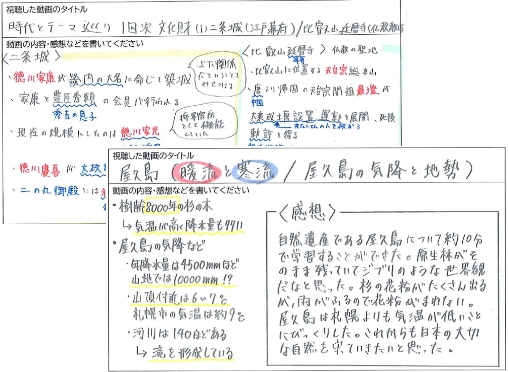 視聴した動画のタイトル
時代とテーマ 巡り 1回次 文化財(1)二条城(江戸幕府)/比叡山延暦寺(仏教
動画の内容・感想などを書いてください
〈二条城〉
・徳川家康が畿内の大名に命じて築城
上下関係
・家康と豊臣秀頼の会見が行われる
秀吉の息子
・現在の規模にしたのは徳川家光
・徳川慶喜が大政
・二の丸御殿
〈比叡山延暦寺〉仏教の聖地
・比叡山に位置する天台宗総本山
・唐より帰国の天台宗開祖最澄が
中国
大乗戒壇設置運動を展開、死後
勅許を得る
視聴した動画のタイトル
屋久島(暖流と寒流/屋久島の気降と地勢)
動画の内容・感想などを書いてください
・樹齢8000年の杉の木
↳気温が高く降水量も多い
・屋久島の気降など
・年降水量は4500mmほど
山地では10000mm!?
・山頂付近は6~7℃
札幌市の気温は約9℃
・河川は140ほどある
↳滝を形成している
〈感想〉
自然遺産である屋久島について約10分
で学習することができた。原生林がそ
のまま残っていてジブリのような世界観
だなと思った。杉の花粉がたくさん出る
が、雨がふるので花粉がまわない。
屋久島は札幌よりも気温が低いこと
にびっくりした。これからも日本の大切
な自然を守っていきたいと思った。